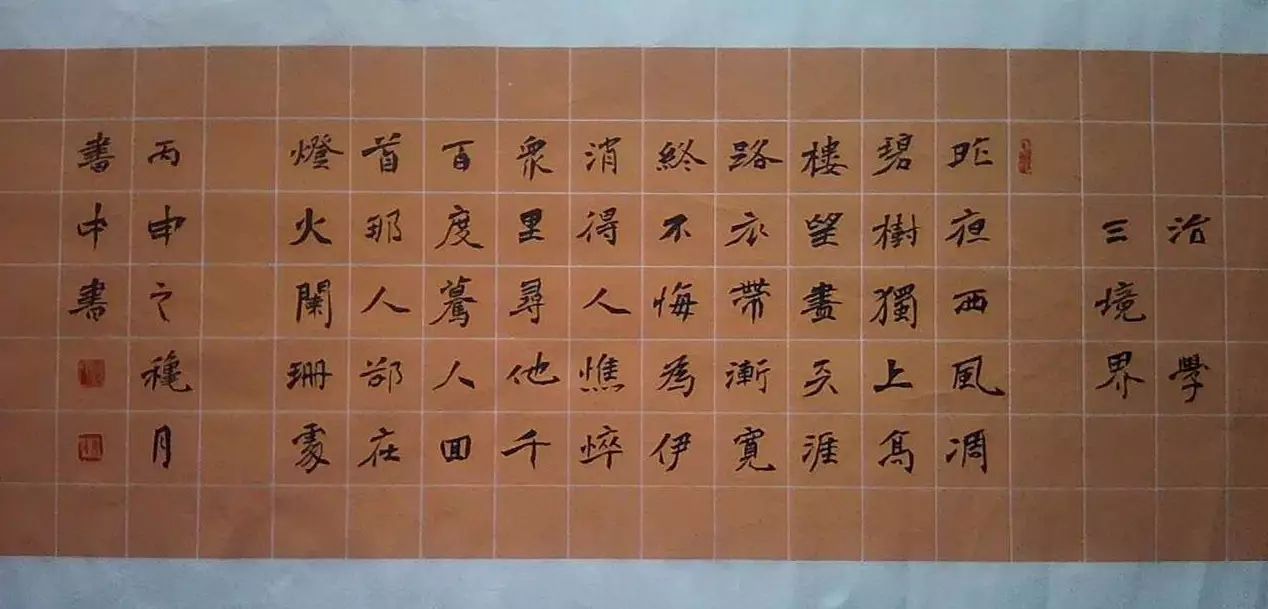 治學
三境界
昨夜西風凋
碧樹獨上高
樓望盡天涯
路衣帶漸寬
終不悔為伊
消得人憔悴
衆里尋他千
百度驀人回
首那人卻在
燈火闌珊處
丙申之穐月
書中書